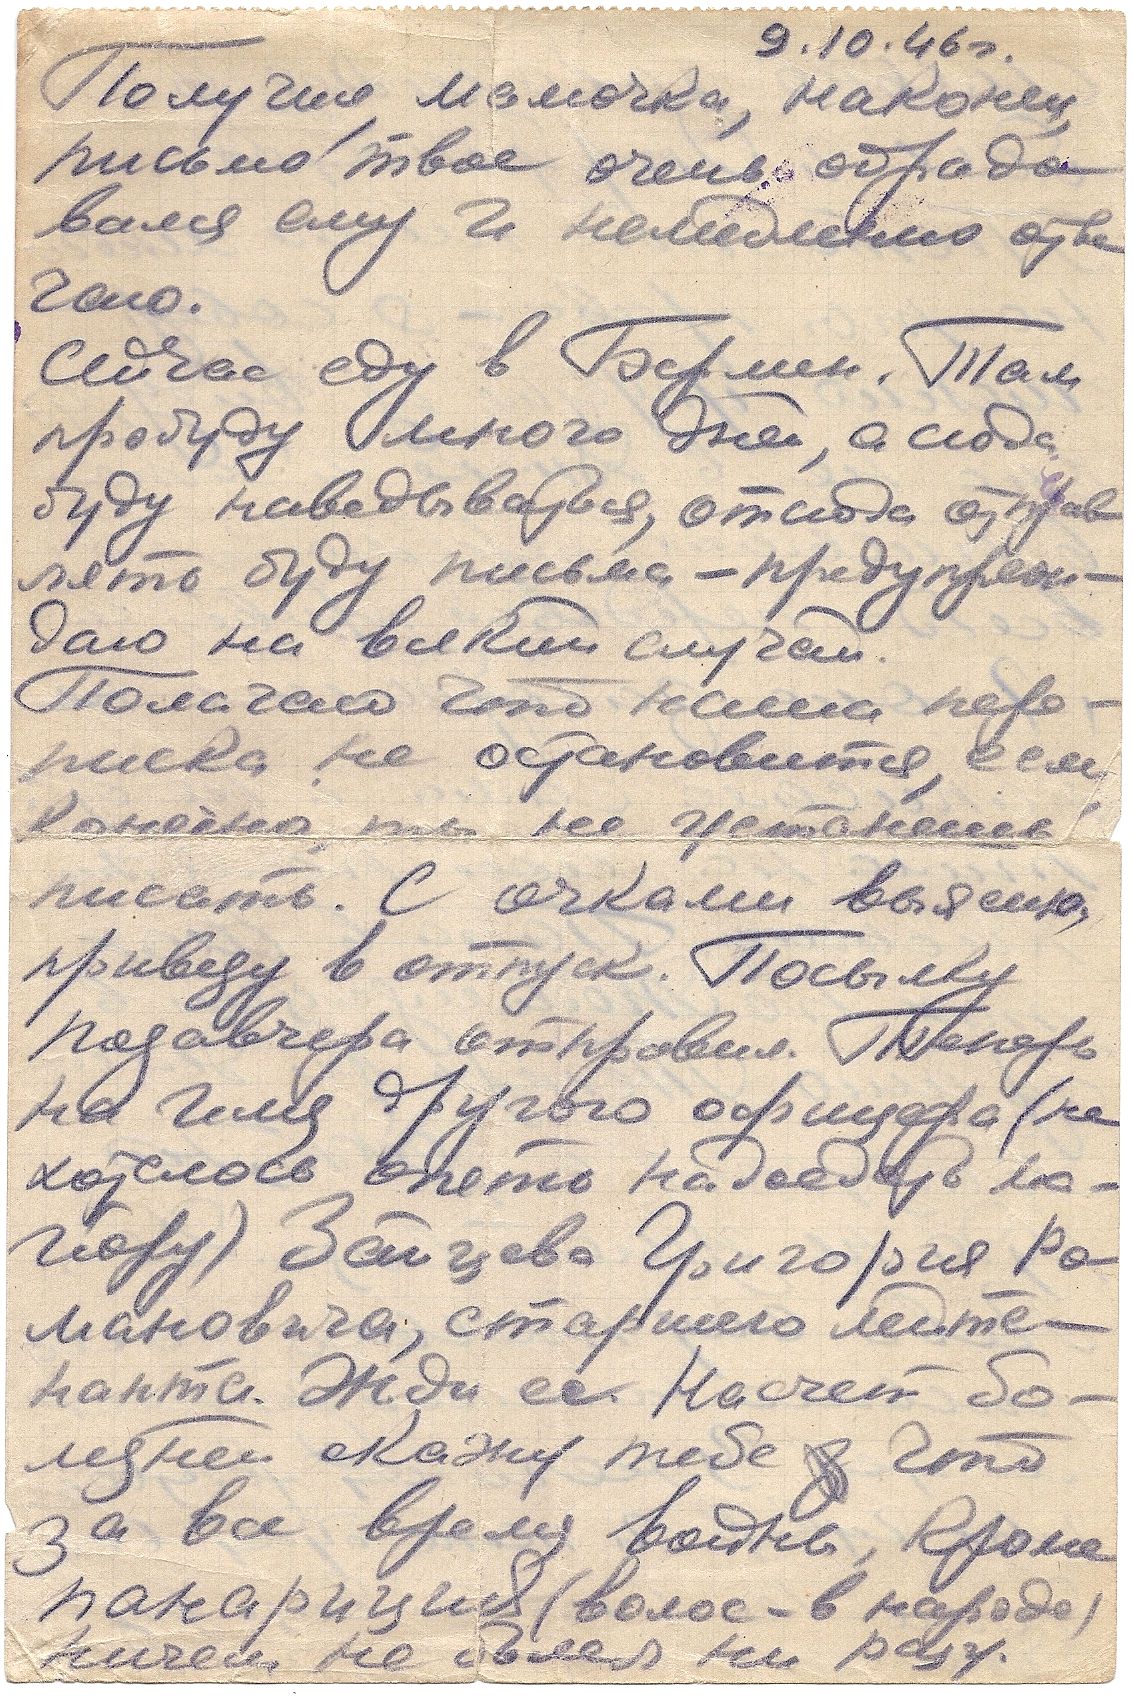 9.10.46 г.
Получил, мамочка, наконец,
письмо твое очень обрадо
вался ему и немедленно отве
чаю.
Сейчас еду в Берлин. Там
пробуду много дней, а сюда
буду наведываться, отсюда отправ
лять буду письма – предупреж–
даю на всякий случай.
Полагаю что наша пере–
писка не остановится, если
конечно, ты не устанешь
писать. С очками выясню,
привезу в отпуск. Посылку
позавчера отправил. Теперь
на имя другого офицера (не
хотелось опять надоедать ма–
йору) Зайцева Григория Ро
мановича, старшего лейте–
нанта. Жди ее. Насчет бо–
лезней скажу тебе что
за все время войны, кроме
панариция (волос – в народе)
ничем не болел ни разу.